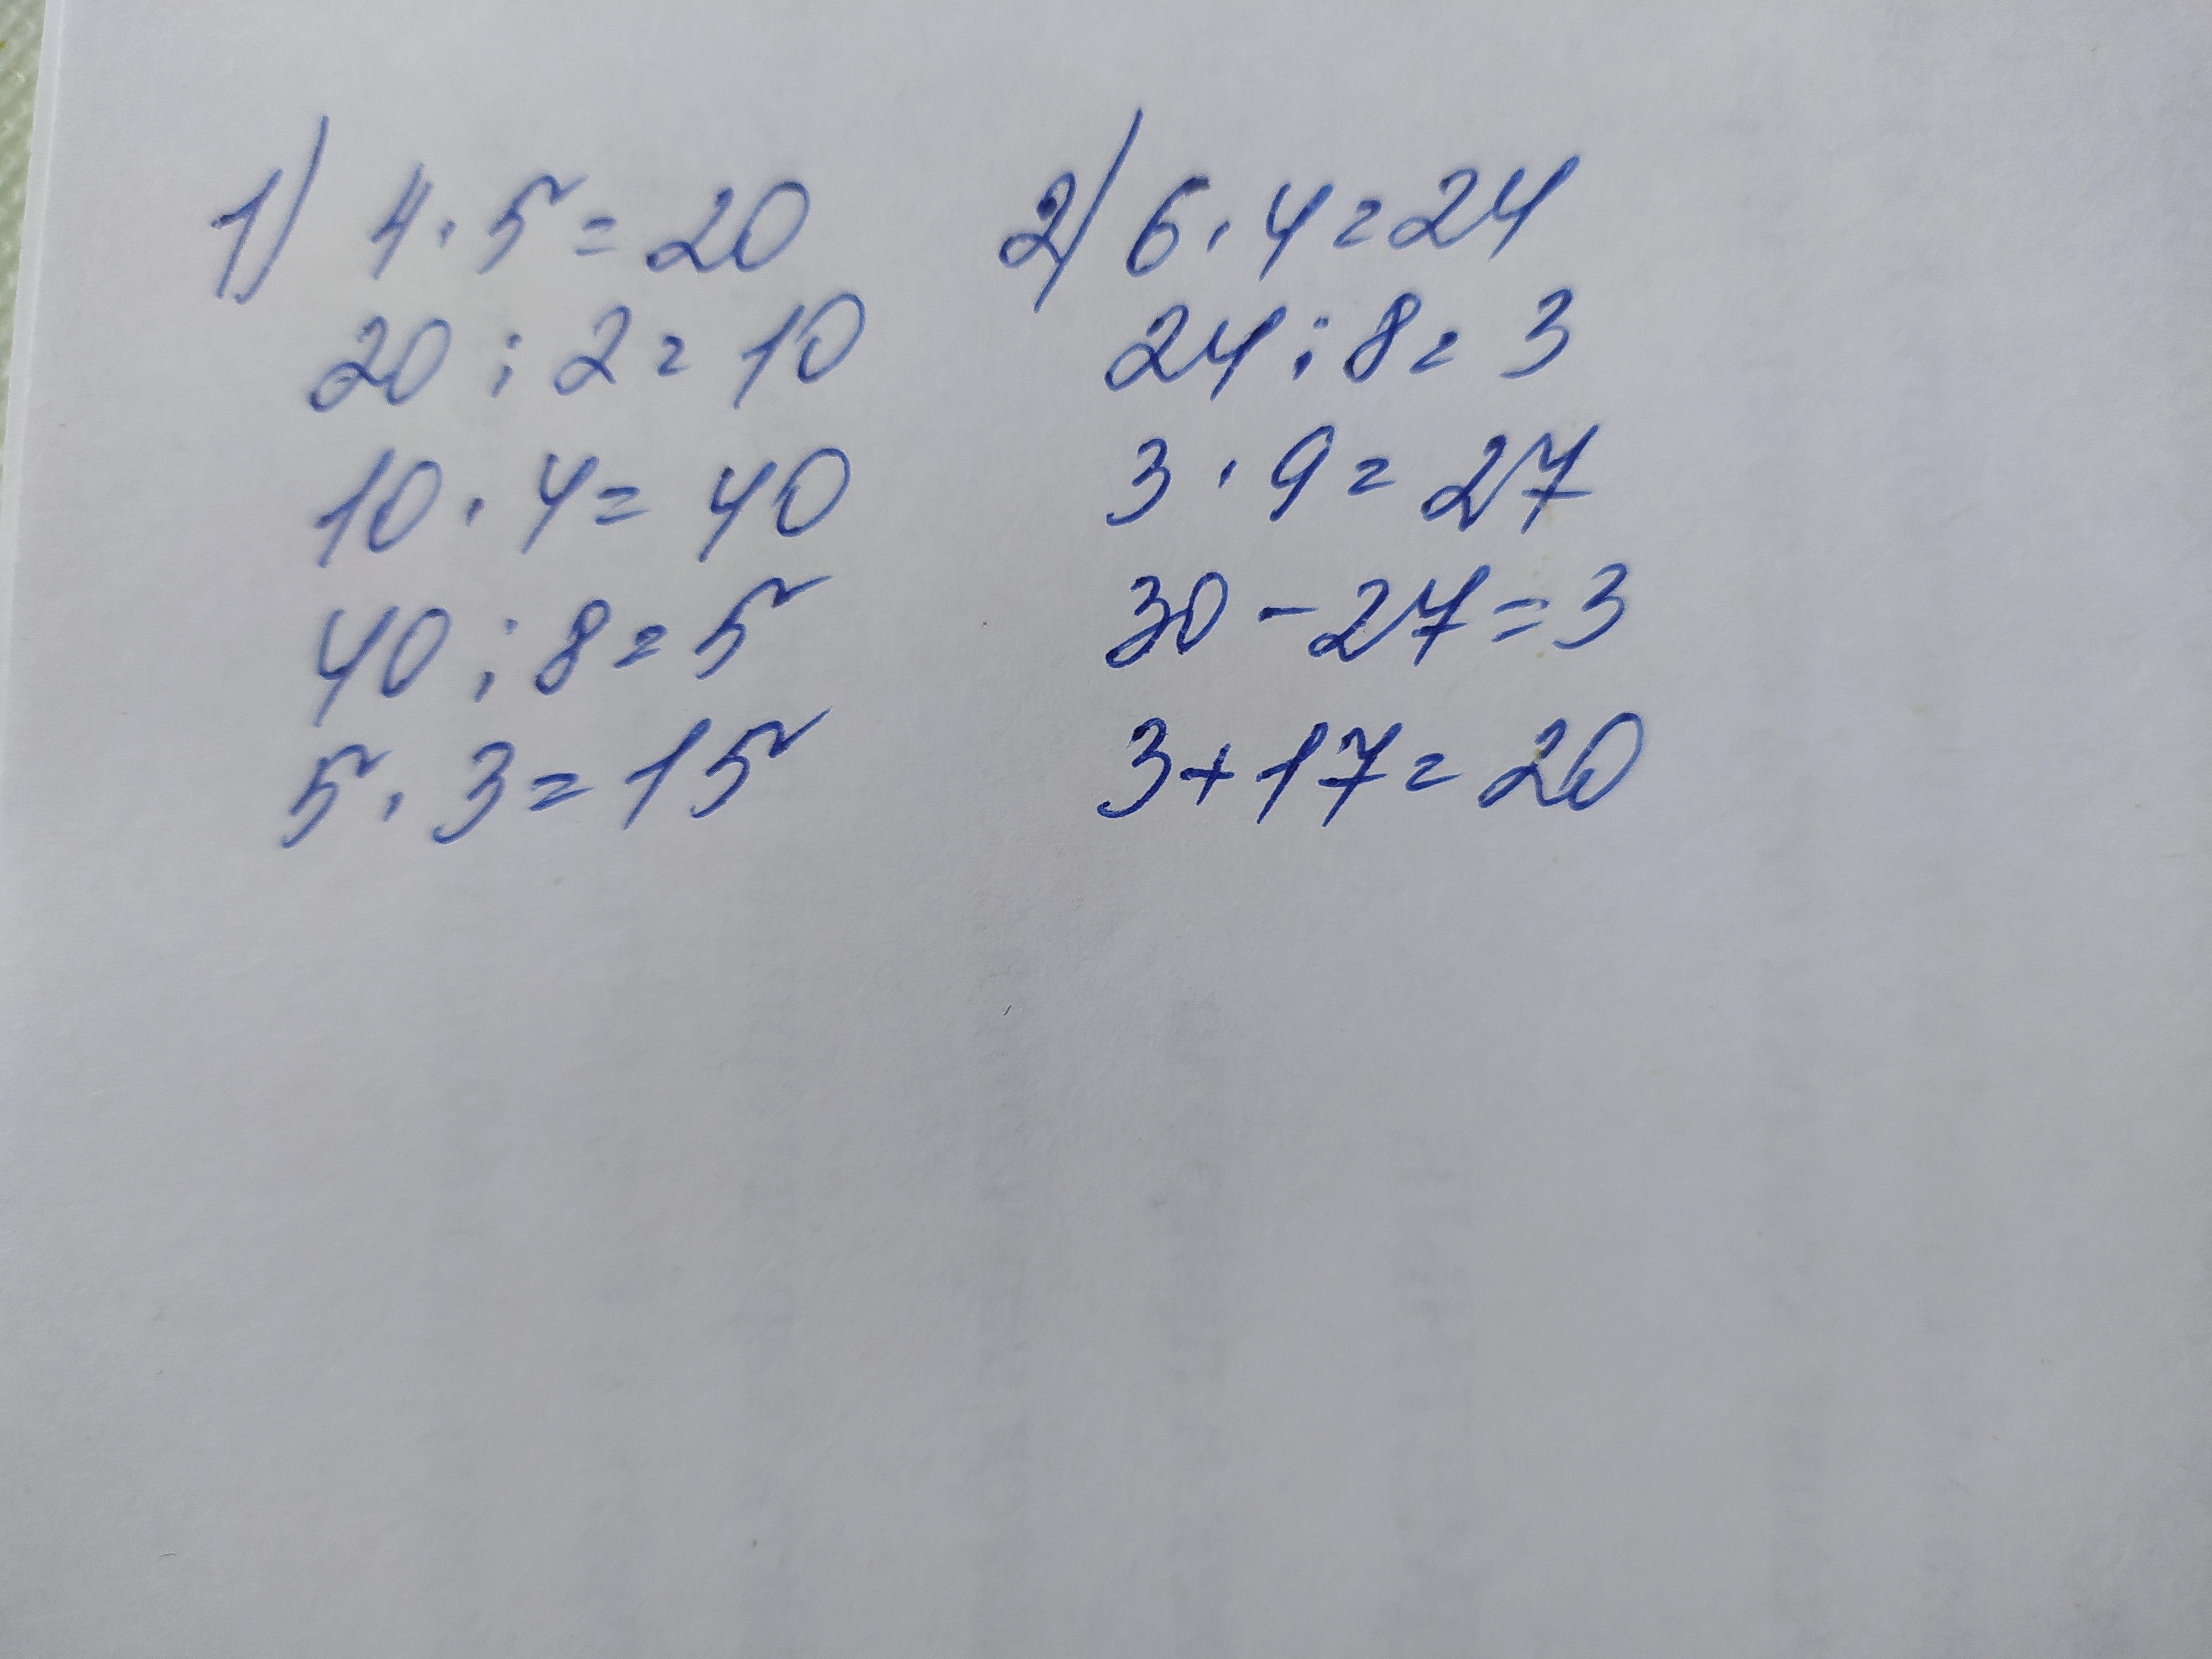 1) 4 · 5 = 20
20 : 2 = 10
10 · 4 = 40
40 : 8 = 5
5 · 3 = 15
2) 6 · 4 = 24
24 : 8 = 3
3 · 9 = 27
30 - 27 = 3
3 + 17 = 20